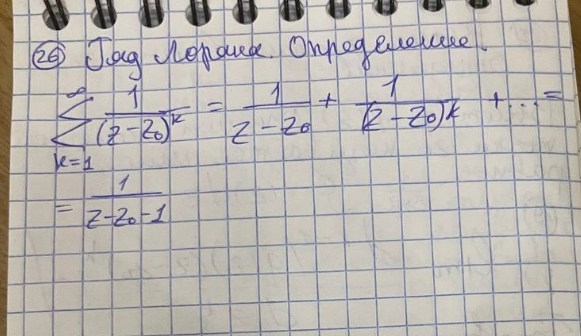 26 Ряд Лорана. Определение.
∞
∑ 1/(z-z₀)^k = 1/(z-z₀) + 1/(z-z₀)^k + ... =
k=1
= 1/(z-z₀-1)